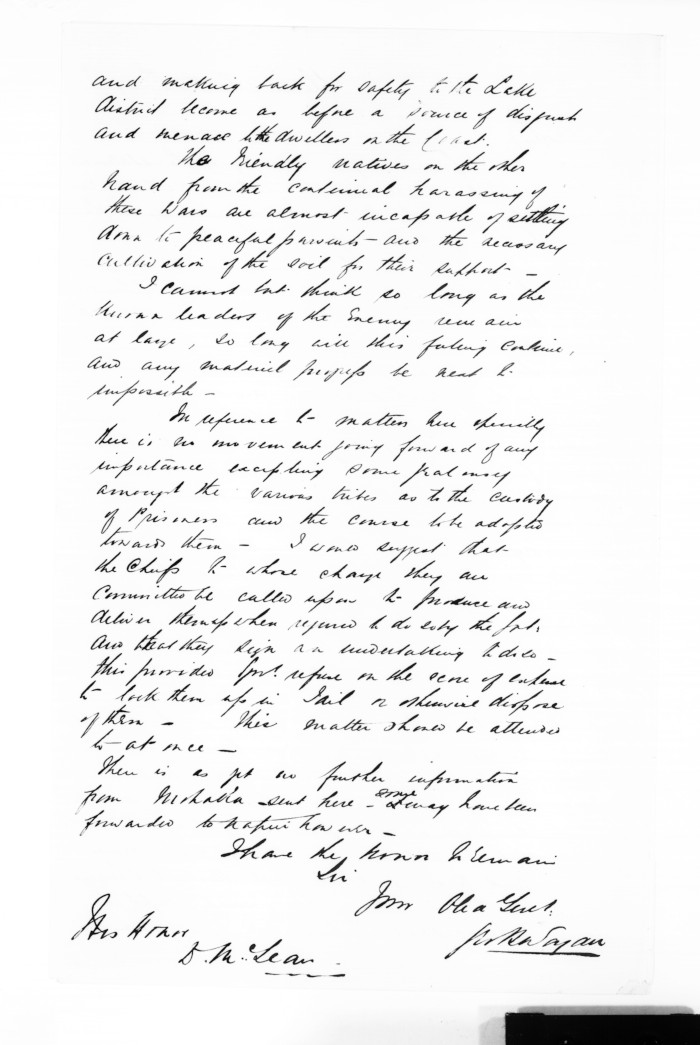 and making back for safety to the Lake
district become as before a source of disgust
and menace to the dwellers on the Coast.
The Friendly natives on the other
hand from the continual harassing of
these Wars are almost incapable of settling
down to peaceful pursuits - and the necessary
cultivation of the soil for their support -
I cannot but think so long as the
known leaders of the Enemy remain
at large, so long will this feeling continue,
and any material progress be next to
impossible -
In reference to matters here specially
there is no movement going forward of any
importance excepting some jealousy
amongst the various tribes as to the custody
of Prisoners and the course to be adopted
towards them - I would suggest that
the Chiefs to whose charge they are
Committed be called upon to produce and
deliver them up when required to do so by the Govt.
and that they sign an undertaking to do so -
this provided Govt. refuse on the score of expense
to lock them up in Jail or otherwise dispose
of them - This matter should be attended
to at once -
There is as yet no further information
from Mohaka sent here - some may have been
forwarded to Napier however -
I have the honor to remain
Sir
Your Obed Servt.
His Honor
D. McLean